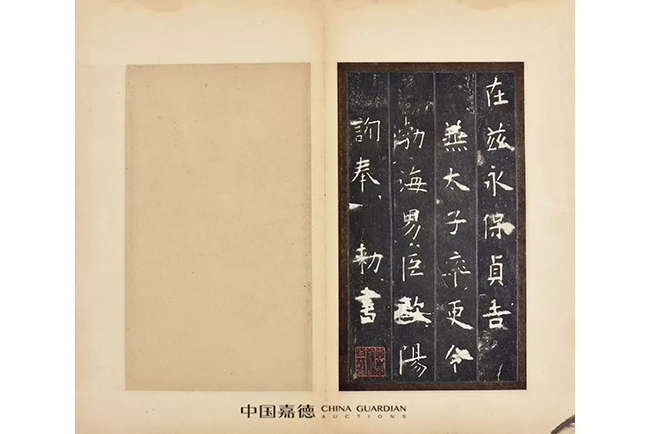 在茲永保貞吉
兼太子率更令
勃海男臣歐陽
詢奉勅書
中国嘉德 CHINA GUARDIAN
AUCTIONS